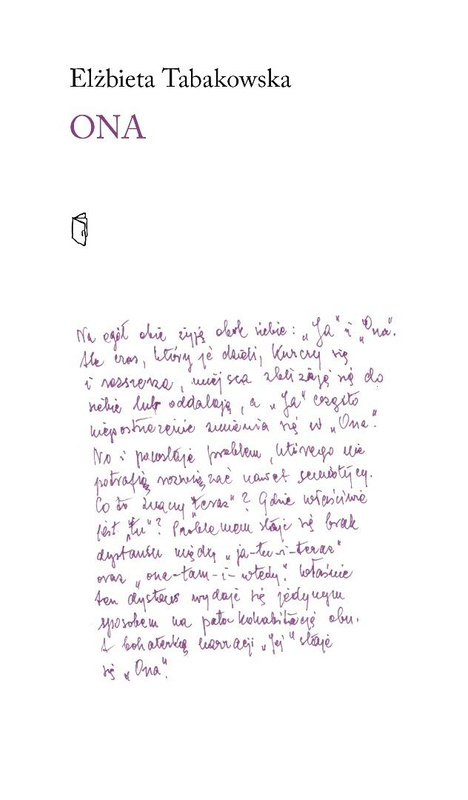 Elżbieta Tabakowska
ONA
Na ogół obie żyją obok siebie: „Ja" i „Ona".
Ale czas, który je dzieli, kurczy się
i rozszerza, miejsca zbliżają się do
siebie lub oddalają, a „Ja" często
niepostrzeżenie zmienia się w „Ona".
No i pozostaje problem, którego nie
potrafią rozwiązać nawet semiotycy.
Co to znaczy „teraz"? Gdzie właściwie
jest „tu"? Problemem staje się brak
dystansu między „ja-tu-i-teraz"
oraz „ona-tam-i-wtedy". Właśnie
ten dystans wydaje się jedynym
sposobem na kohabitację obu.
A bohaterką narracji „Jej" staje
się „Ona".